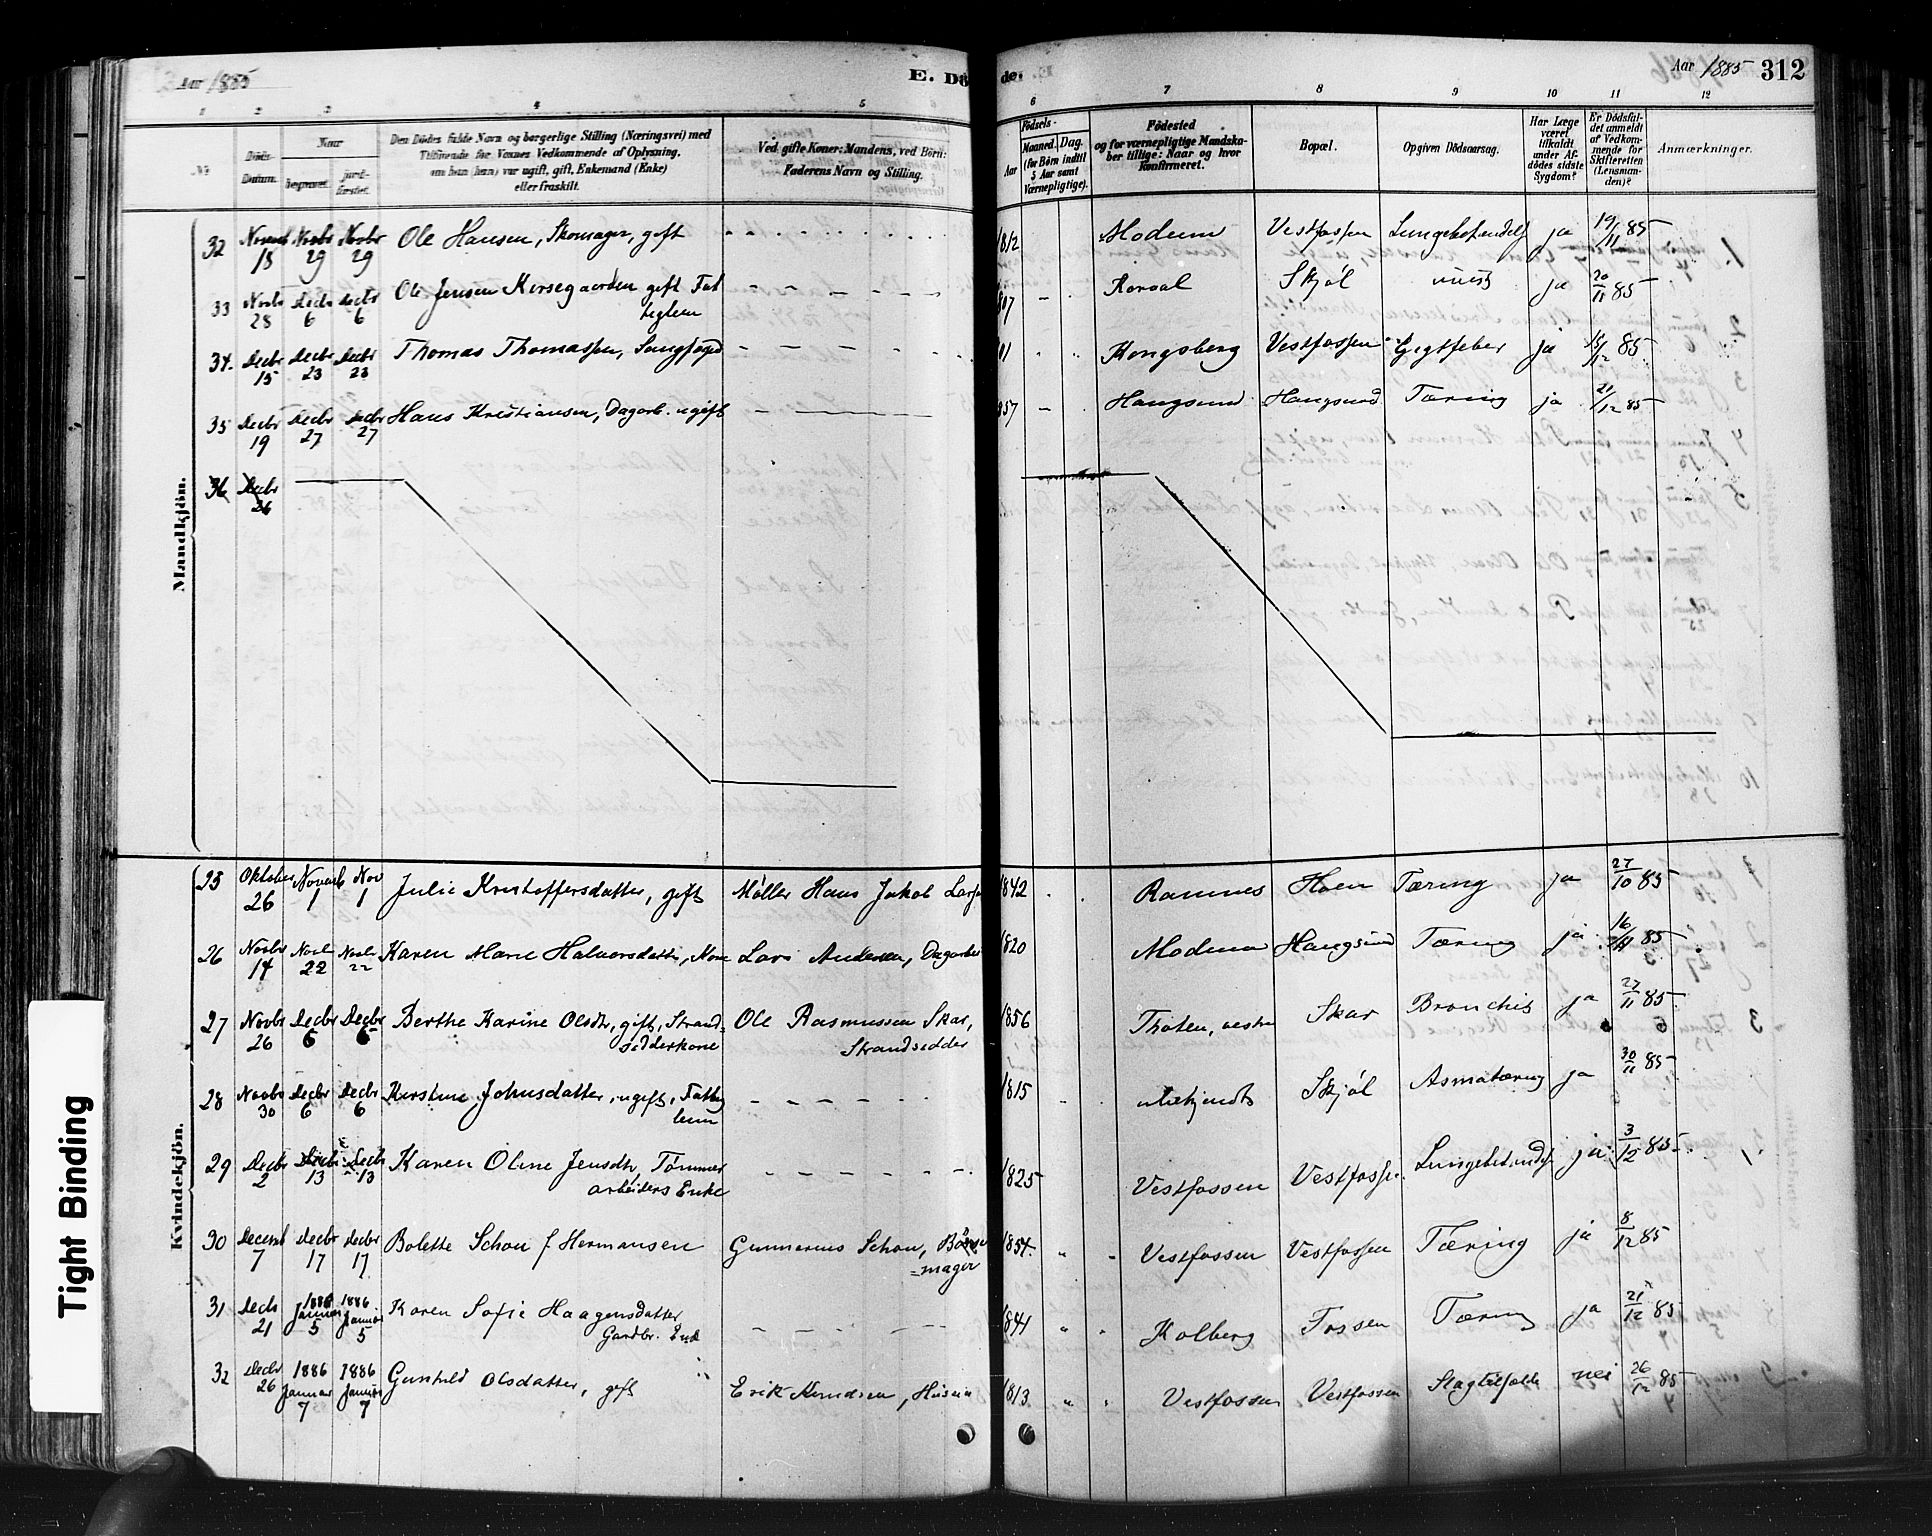 Aar 1885
E. Dö
de.
Aar 1885 312
1 2 3 4 5
6 7 8 9 10 11 12
No
Döds-Datum.
Naar
begravet.
jord-fæstet.
Den Dödes fulde Navn og borgerlige Stilling (Næringsvei) med
Tilföiende for Voxnes Vedkommende af Oplysning,
om han (hun) var ugift, gift, Enkemand (Enke)
eller fraskilt.
Ved gifte Koner: Mandens, ved Börn:
Faderens Navn og Stilling.
Födsels-
Aar
Maaned. Dag.
(for Börn indtil
5 Aar samt
Værnepligtige).
Födested
og for værnepligtige Mandska-
ber tillige: Naar og hvor
Konfirmeret.
Bopæl.
Opgiven Dödsaarsag.
Har Læge
været
tilkaldt
under Af-
dödes sidste
Sygdom?
Er Dödsfal-
det anmeldt
af Vedkom-
mende for
Skifteretten
(Lensman-
den)?
Anmærkninger.
Mandkjön.
32 18 Novbr 29 Novbr 29 Ole Hansen, Skomager, gift 1812 Modum Vestfossen ja 19/11 85
33 Novbr 28 Decbr 6 Decbr 6 Ole Jensen Korsegaarden gift Fat
tiglem Skjøl ja 85
34. Decbr 15 Decbr 23 Decbr 23 Thomas Thomassen, Kongsberg Vestfossen Gigtfeber ja 85
35 Decbr 19 Decbr 27 Decbr 27 Hans Kristiansen, Dagarb. ugift 857 Haugsund Haugsund Tæring ja 21/12 85
36 Decbr 26
Kvindekjön.
25 Oktober 26 Novemb 1 Nov 1 Julie Kristoffersdatter, gift Møller Hans Jakob 1842 Ramnes Hoen Tæring ja 27/10 85
26 Novbr 14 Novbr 22 Novbr 22 Karen Marie Halvorsdatter, Kone Lars Andersen, 1820 Modum Haugsund Tæring ja 85
27 Novbr 26 Decbr 6 Decbr 6 Berthe Karine Olsdtr, gift, Strand-
sidderkone Ole Rasmussen Skar,
Strandsidder 1856 Thoten, vestre Skar Bronchit ja 27/11 85
28 Novbr 30 Decbr 6 Decbr 6 Kirstine Johnsdatter, ugift, Fattig
lem 1815 ubekjendt Skjøl Asmatæring ja 30/11 85
29 Decbr 2 Decbr 13 Decbr 13 Karen Oline Jensdtr, Tømmer
arbeiders Enke 1825 Vestfossen Vestfosse ja 3/12 85
30 Decemb 7 Decbr 17 Decbr 17 Bolette Schou f Hermansen Gunnerius Schou,
mager 1854 Vestfossen Vestfossen Tæring ja 8/12 85
31 Decbr 21 1886 Januar 5 1886 Januar 5 Karen Sofie Haagensdatter
Gardbr. Enk 1841 Kolberg Fossen Tæring ja 21/12 85
32 Decbr 26 1886 Januar 7 1886 Januar 7 Gunhild Olsdatter, gift Erik Knudsen, 1813 Vestfossen Vestfossen Slagtilfælde nei 26/12 85
Tight Binding